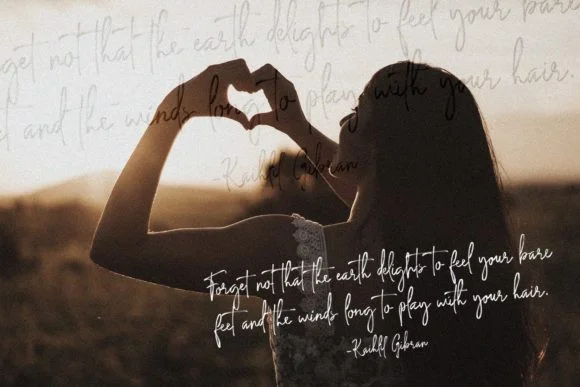 rget not that the earth delights to feel your bare
et and the winds long to play with your hair.
-Kaihlil Gibran
Forget not that the earth delights to feel your bare
feet and the winds long to play with your hair.
-Kaihlil Gibran